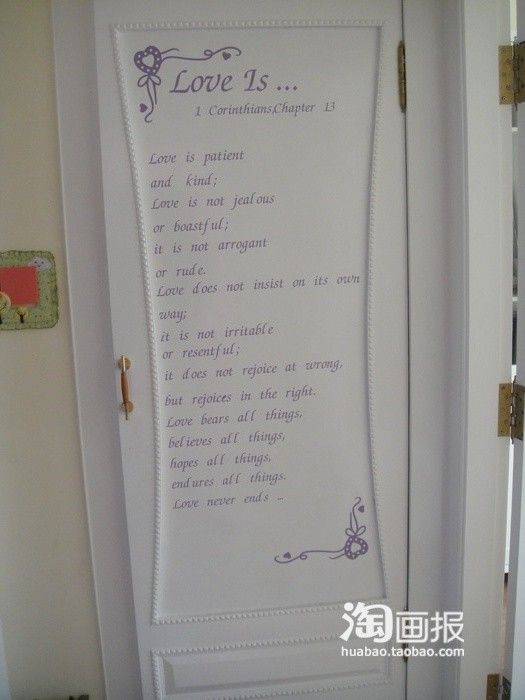 Love Is ...
1 Corinthians,Chapter 13
Love is patient
and kind;
Love is not jealous
or boastful;
it is not arrogant
or rude.
Love does not insist on its own
way;
it is not irritable
or resentful;
it does not rejoice at wrong,
but rejoices in the right.
Love bears all things,
believes all things,
hopes all things,
endures all things.
Love never ends ...
淘画报
huabao.taobao.com